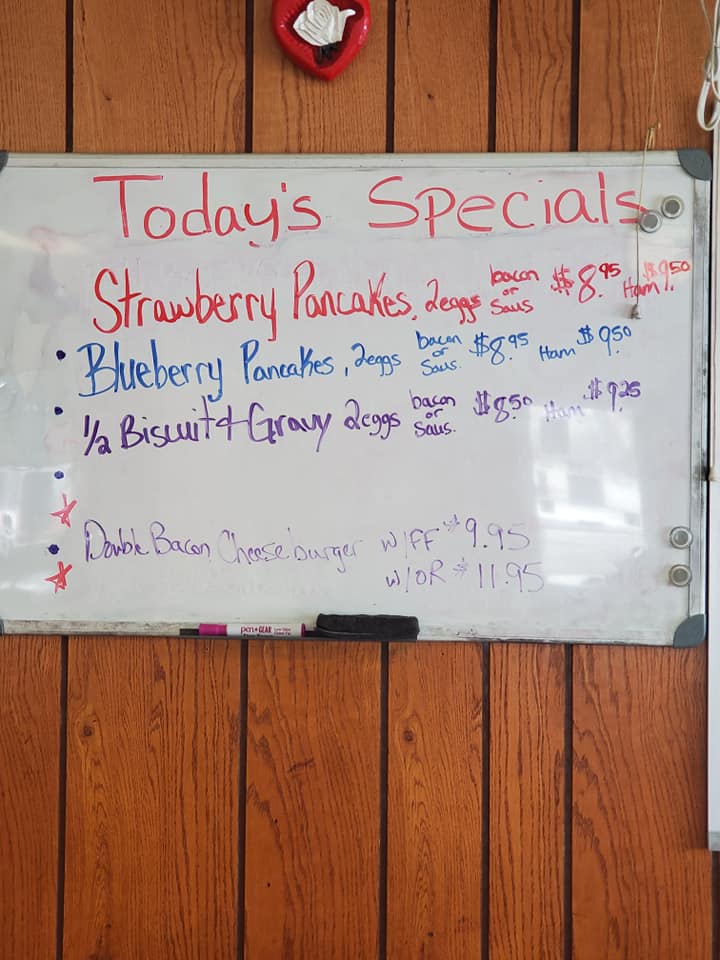 Today's Specials
Strawberry Pancakes, 2eggs bacon or Saus $8.95 Ham $9.50
Blueberry Pancakes, 2eggs bacon or Saus. $8.95 Ham $9.50
1/2 Biscuit & Gravy 2eggs bacon or Saus. $8.50 Ham $9.25
Double Bacon Cheeseburger w/FF $9.95
w/OR $11.95
pen+GEAR